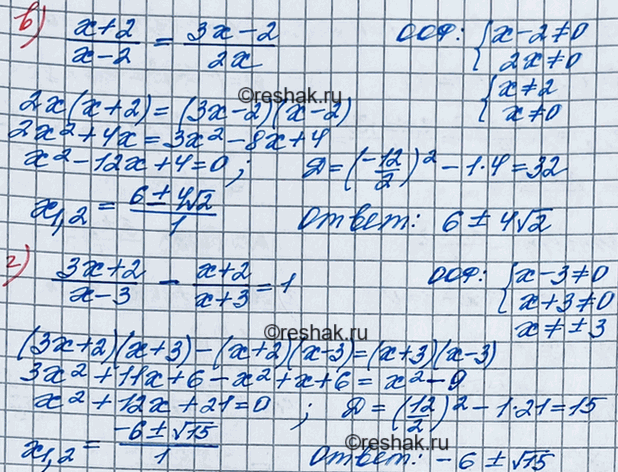 в) (x+2)/(x-2) = (3x-2)/(2x) ООФ: { x-2≠0
2x≠0
2x(x+2)=(3x-2)(x-2) { x≠2
x≠0
©reshak.ru
2x²+4x=3x²-8x+4
x²-12x+4=0; Д=(-12/2)²-1·4=32
x1,2 = (6±4√2)/1 Ответ: 6±4√2
г) (3x+2)/(x-3) - (x+2)/(x+3) = 1 ООФ: { x-3≠0
x+3≠0
x≠±3
©reshak.ru
(3x+2)(x+3)-(x+2)(x-3)=(x+3)(x-3)
3x²+11x+6-x²+x+6=x²-9
x²+12x+21=0; Д=(12/2)²-1·21=15
x1,2 = (-6±√15)/1 Ответ: -6±√15
©reshak.ru